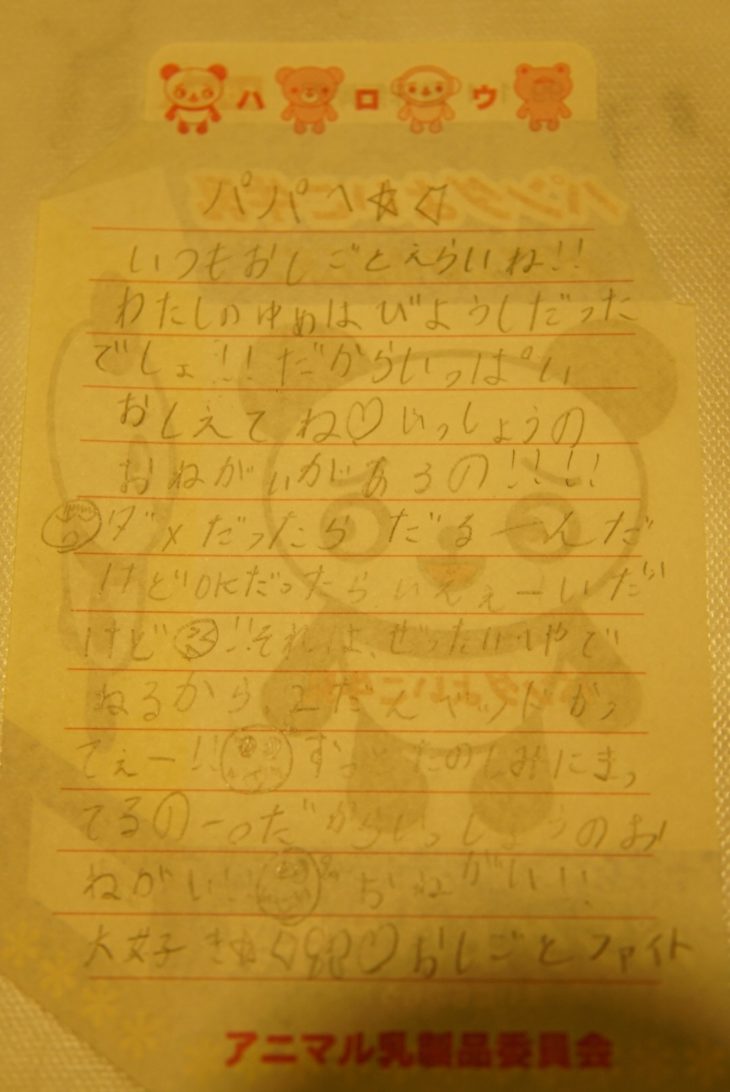 ハロウ
パパへ☆
いつもおしごとえらいね!!
わたしのゆめはびようしだった
でしょ!!だからいっぱい
おしえてね♡いっしょうの
おねがいがあるの!!!!
ダメだったらだるーんだ
けどOKだったらいえぇーいだ
けど!!それは、ぜったいいやで
ねるから、2だんベッドかっ
てぇー!!ずっとたのしみにまっ
てるの だからいっしょうのお
ねがい! おねがい!!
大好き ♡おしごとファイト
アニマル乳製品委員会